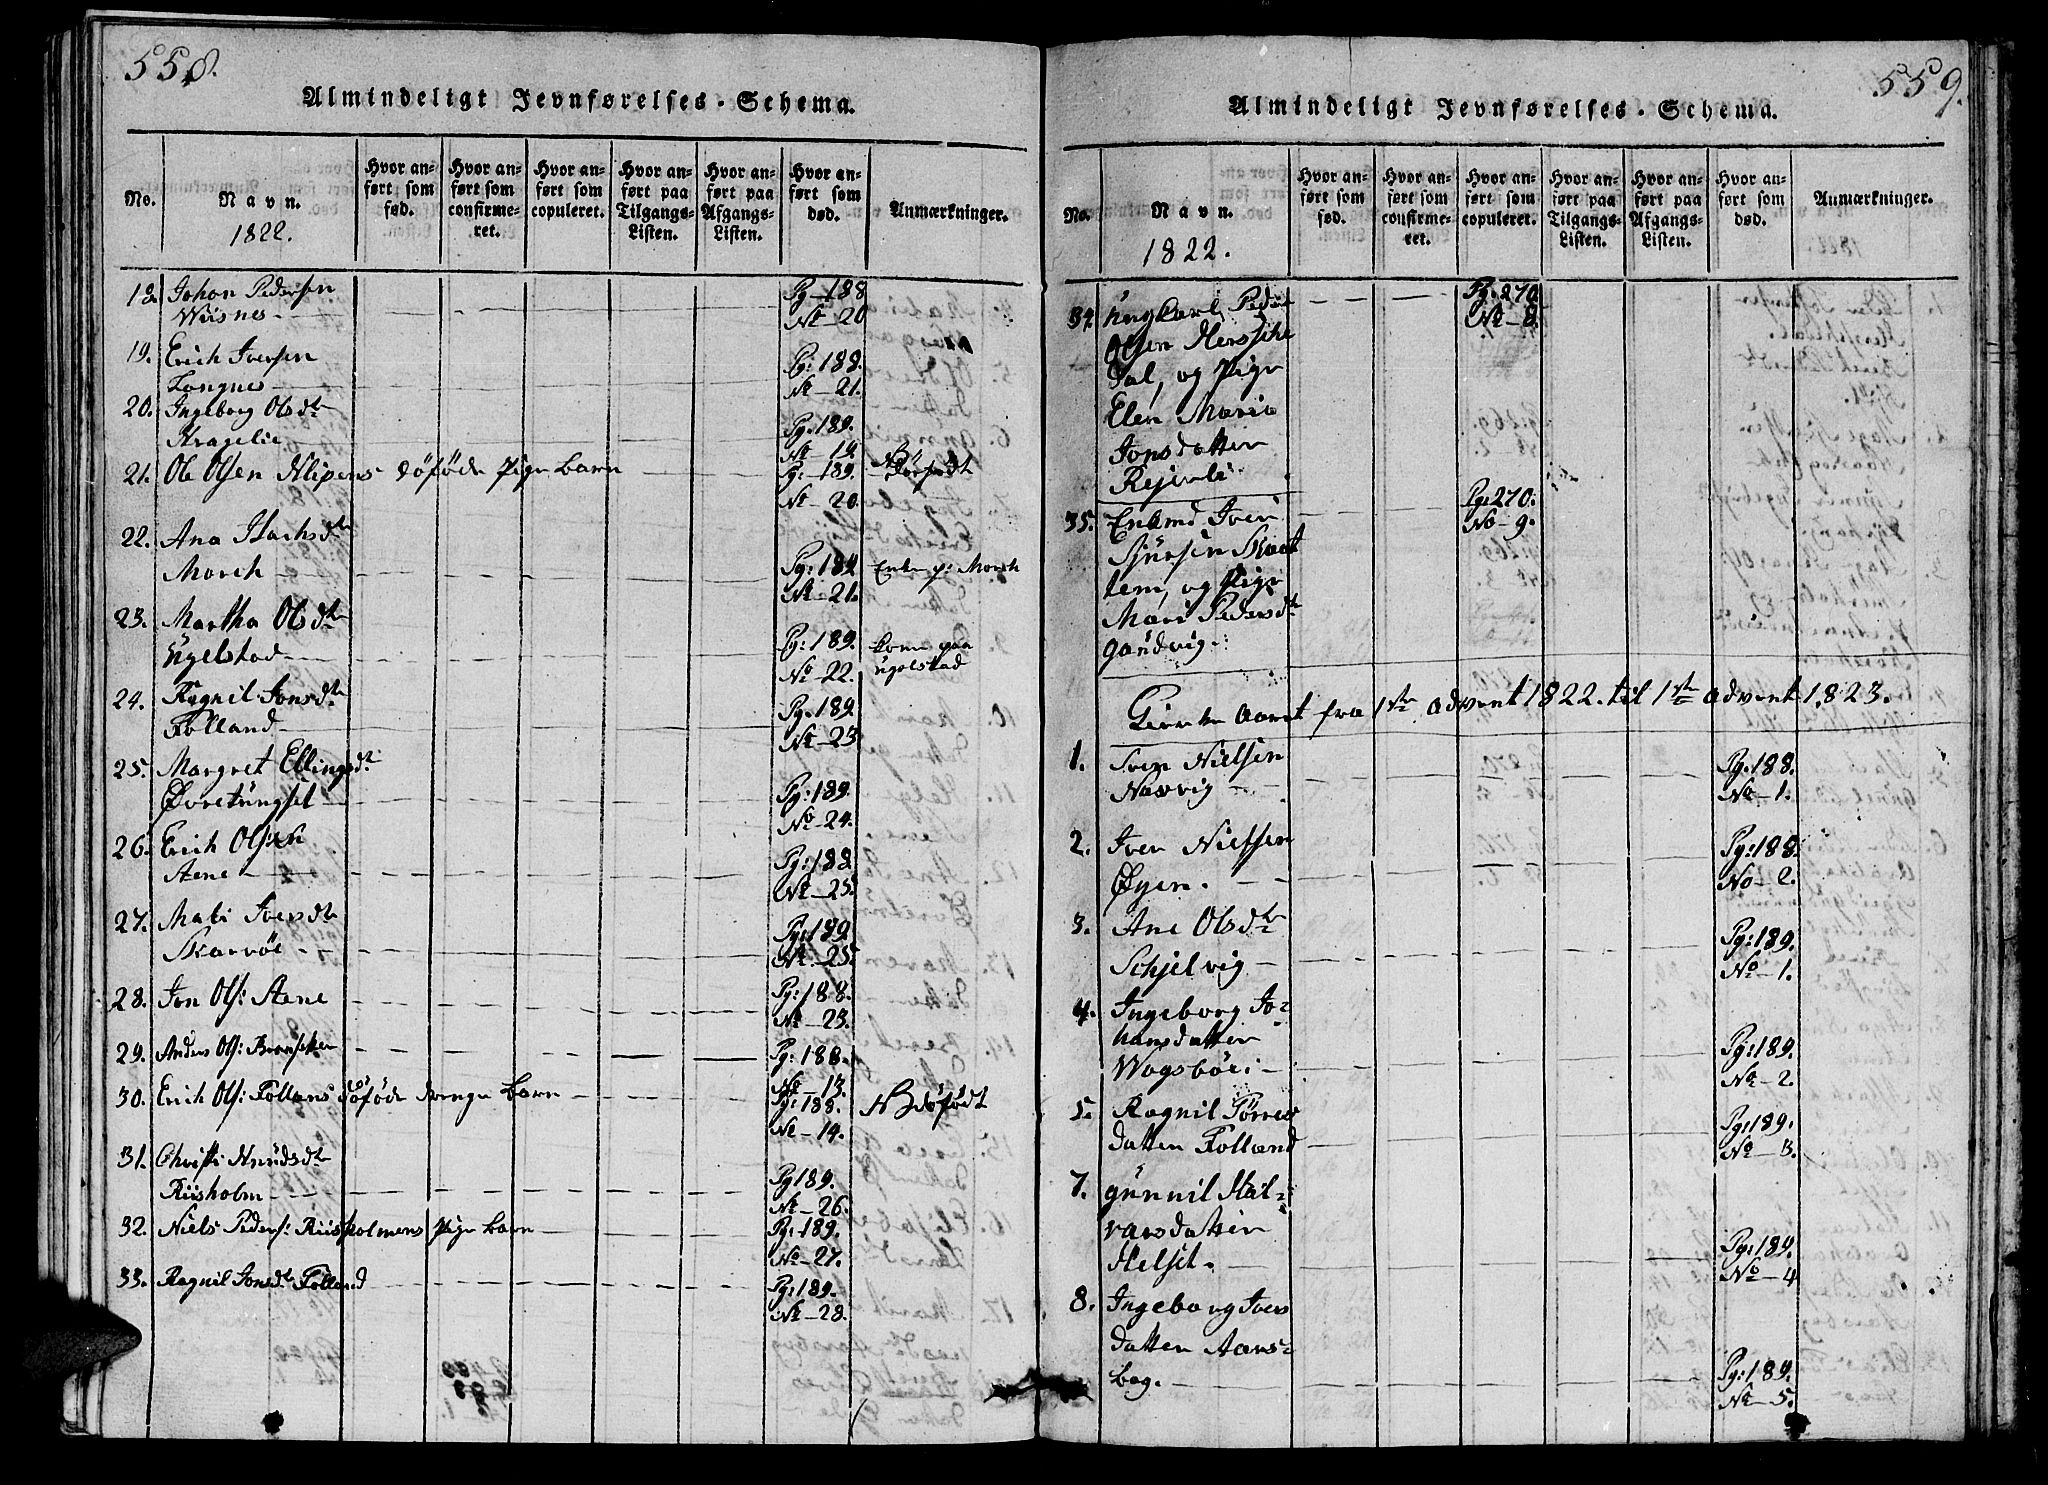 558.
Almindeligt Jevnførelses-Schema.
No.
Navn.
1822.
Hvor anført som fød.
Hvor anført som confirmeret.
Hvor anført som copuleret.
Hvor anført paa Tilgangs-Listen.
Hvor anført paa Afgangs-Listen.
Hvor anført som død.
Anmærkninger.
18. Johan Pedersen Pg 188
Wiisnes No 20
19. Erich Iversen Pg: 188.
Langnes No 21.
20. Ingeborg Olsdtr Pg. 189.
Kragelie No 19.
21. Ole Olsen döföde Pige barn Pg: 189.
No 20.
22. Ana
Morch Pg: 189 Enke p: Morch
No 21.
23. Martha Olsdtr Pg: 189.
Ugelstad No 22. paa Ugelstad
24. Ragnil Jonsdtr Pg: 189
Folland No 23
25. Margret Ellingsdtr Pg: 189.
No 24.
26. Erich Olsen Pg: 188
Aene No 25
27. Mali Iversdtr Pg: 189
No 25.
28. Jon Ols: Aene Pg: 188.
No 23.
29. Anders Ols: Pg: 188.
No 13.
30. Erich Ols: Follans döföde drenge barn Pg: 188. NB döfödt
No 14.
31. Christi Knudsdtr Pg 189.
Riisholm No 26.
32. Niels Peders: Riisholmens Pige barn Pg: 189.
No 27.
33. Ragnil Jonsdtr Folland Pg: 189.
No 28.
559.
Almindeligt Jevnførelses-Schema.
No.
Navn.
1822.
Hvor anført som fød.
Hvor anført som confirmeret.
Hvor anført som copuleret.
Hvor anført paa Tilgangs-Listen.
Hvor anført paa Afgangs-Listen.
Hvor anført som død.
Anmærkninger.
34. Ungkarl Peder Pg. 270.
Olsen No 8.
dal, og Pige
Elen Maria
Jonsdatter
35. Enkmd Iver Pg: 270.
Sjursen No 9.
tem, og Pige
Mari Pedersdtr
Gondvig.
Kirke Aaret fra 1ste advent 1822. til 1ste advent 1823.
1. Iver Nielsen Pg. 188.
Naxvig No 1.
2. Iver Nielsen Pg: 188.
Øyen. No 2.
3. Ane Olsdtr Pg: 189.
Schjelvig No 1.
4. Ingeborg Jo-
hansdatter Pg: 189.
Wogsböe: No 2.
5. Ragnil Torres Pg: 189.
datter Folland No 3.
7. Gunnil Hal-
varsdatter Pg: 189.
Helset. No 4
8. Ingeborg Ivers
datter Aars- Pg: 189.
bog. No 5.